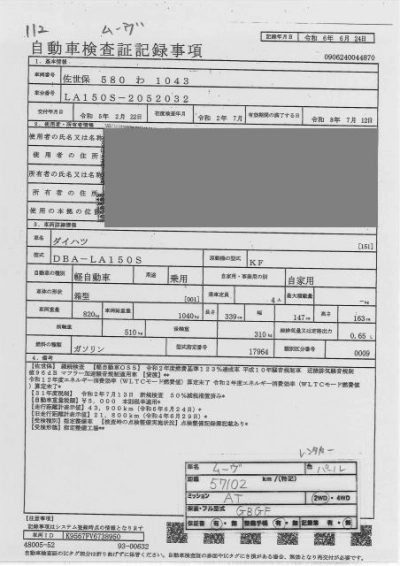 112 ムーヴ
記録年月日 令和 6年 6月 24日
自動車検査証記録事項
0906240044870
1. 基本情報
車両番号 佐世保 580 わ 1043
車台番号 LA150S-2052032
交付年月日 令和 5年 2月 22日 初度検査年月 令和 2年 7月 有効期間の満了する日 令和 8年 7月 12日
2. 使用者・所有者情報
使用者の氏名又は名称
使用者の住所
所有者の氏名又は名称
所有者の住所
使用の本拠の位置
3. 車両詳細情報
車名 ダイハツ [151]
型式 DBA-LA150S 原動機の型式 KF
自動車の種別 軽自動車 用途 乗用 自家用・事業用の別 自家用
車体の形状 箱型 [001] 乗車定員 4人 最大積載量 -kg
車両重量 820kg 車両総重量 1040kg 長さ 339cm 幅 147cm 高さ 163cm
前軸重 510kg 後軸重 310kg 総排気量又は定格出力 0.65 L
燃料の種類 ガソリン 型式指定番号 17964 類別区分番号 0009
4. 備考
【佐世保】 継続検査 【軽自動車OSS】 令和2年度燃費基準123%達成車 平成10年騒音規制車 近接排気騒音規制
値95dB マフラー加速騒音規制適用車 【受渡】**
令和12年度エネルギー消費効率(WLTCモード燃費値)算定未了 令和2年度エネルギー消費効率(WLTCモード燃費値)
算定未了*
【31年度税制】 令和2年7月12日 新規検査 50%減税検査済み*
【自動車重量税額】 ¥5,000 本則税率適用*
【走行距離計表示値】 43,900km (令和6年6月24日)*
【旧走行距離計表示値】 21,800km (令和4年6月29日)*
【受検種別】 指定整備車 【検査時の点検整備実施状況】 点検整備記録簿記載あり*
【受検形態】 指定整備工場*
レンタカー
車名 ムーヴ 色 パール
距離 57102 km/(特記)
ミッション AT 2WD・4WD
装置・フル型式 GBGF
保証書 有・無 整備手帳 有・無 記録簿 有・無
【注意事項】
記録事項はシステム登録時点の情報となります
車両ID K9567FV6738950
48005-52 93-00632
自動車検査証のICタグ部分は折り曲げずに保管ください。